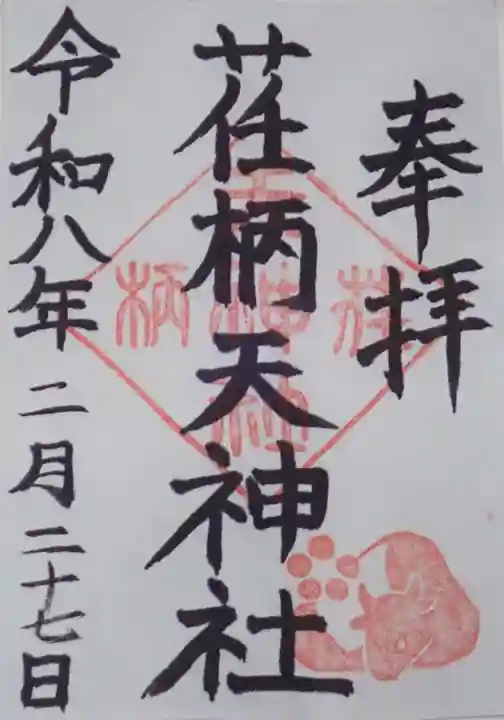 奉拝
荏柄天神社
令和八年二月二十七日
荏
天神社
柄